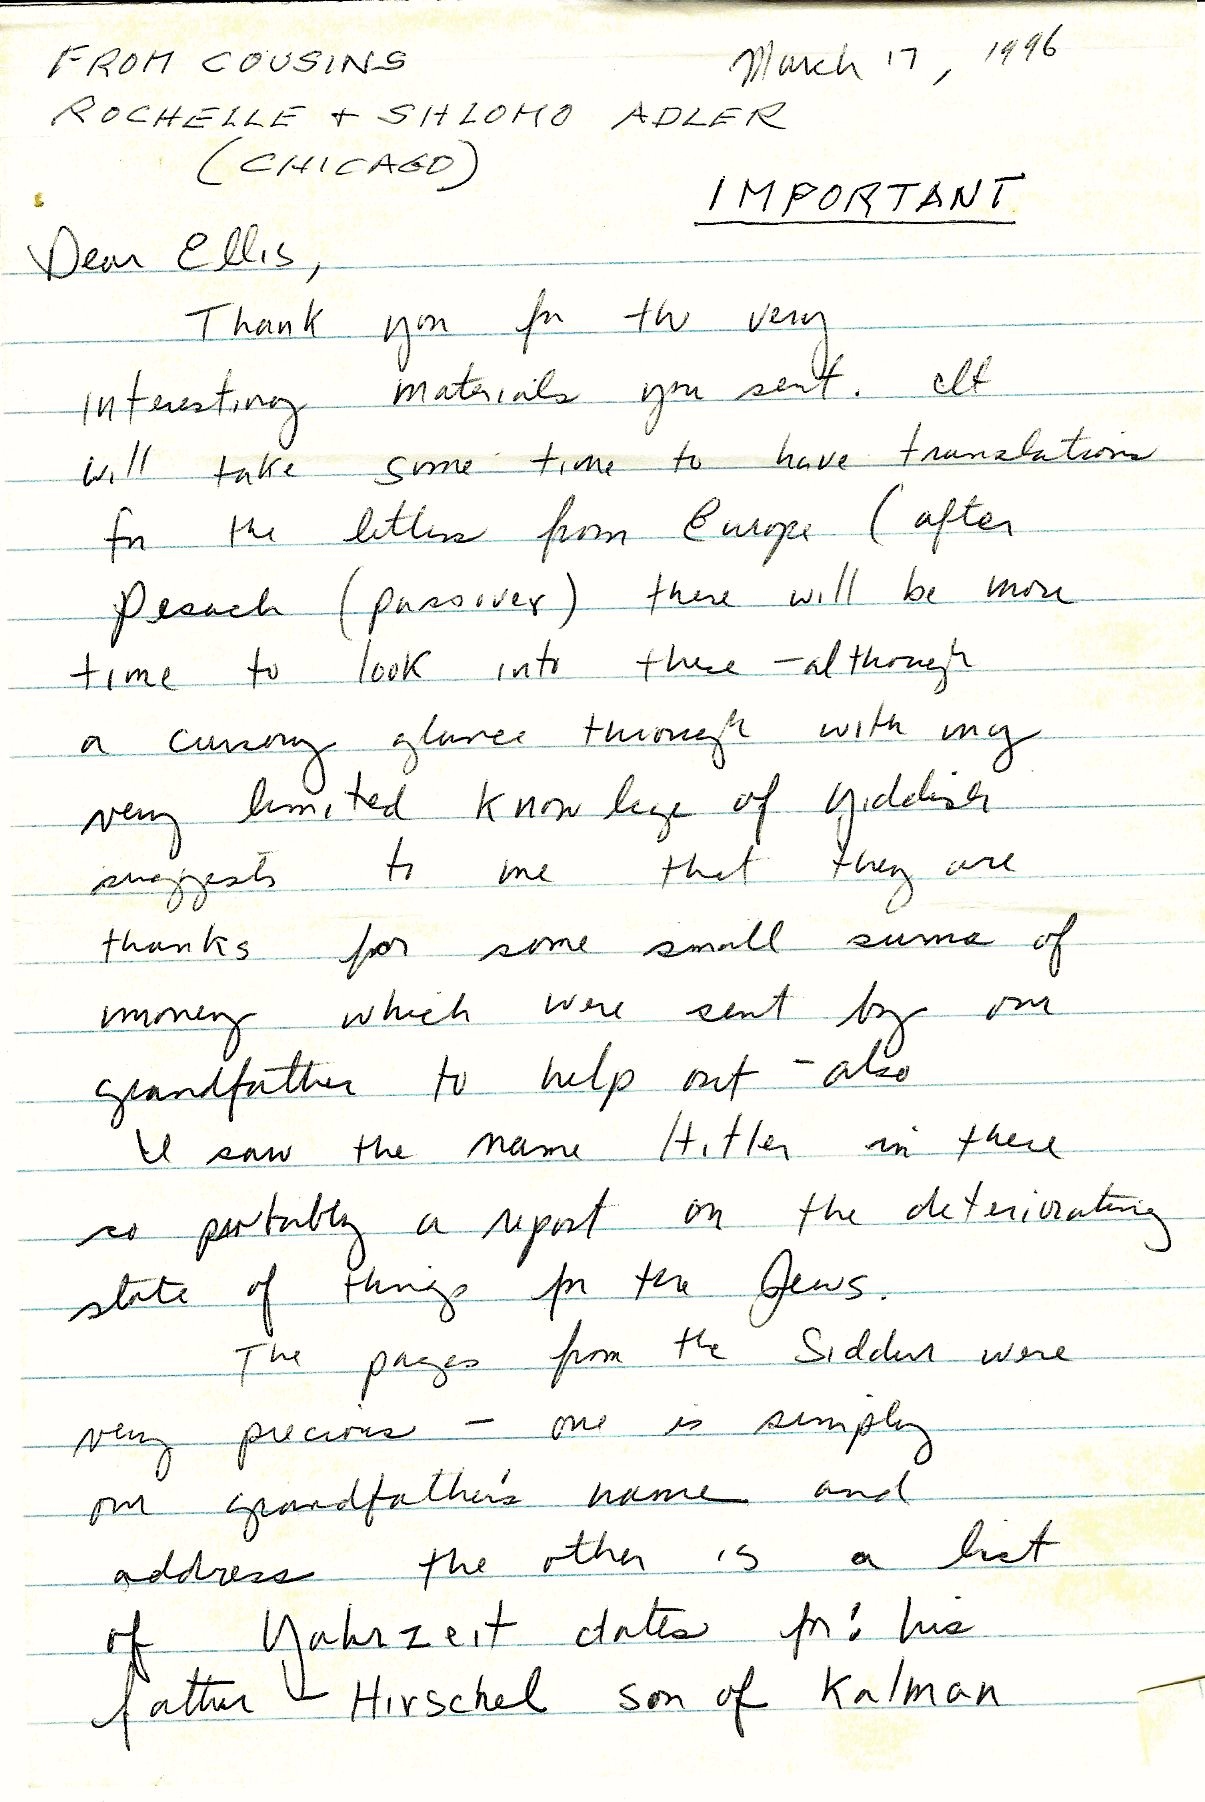 FROM COUSINS
March 17, 1996
ROCHELLE + SHLOMO ADLER
(CHICAGO)
IMPORTANT
Dear Ellis,
Thank you for the very
interesting materials you sent. It
will take some time to have translations
for the letters from Europe (after
Pesach (passover) there will be more
time to look into these - although
a cursory glance through with my
very limited knowlege of Yiddish
suggests to me that they are
thanks for some small sums of
money which were sent by our
grandfather to help out - also
I saw the name Hitler in there
so probably a report on the deteriorating
state of things for the Jews.
The pages from the Siddur were
very precious - one is simply
our grandfather's name and
address the other is a list
of Yahrzeit dates for: his
father - Hirschel son of Kalman